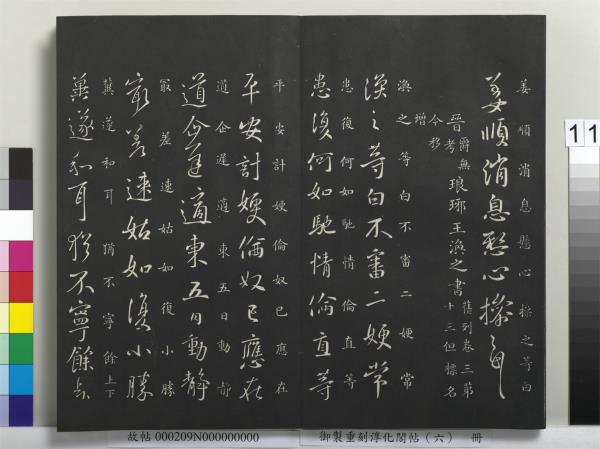 姜順消息懸心操之等白
姜順消息懸心操之等
晉 爵無考 今移增 琅琊王渙之書 舊列卷三第十三但標名
渙之等白不審二嫂常
渙之等白不審二嫂常
患復何如馳情倫直等
患復何如馳情倫直等
平安計嫂倫奴已應在
平安計嫂倫奴已應在
道企遲適東五日動靜
道企遲適東五日動靜
最差速姑如復小勝
最差速姑如復小勝
冀遂和耳猶不寧餘上下
冀遂和耳猶不寧餘上下
11
故帖 000209N000000000
御製重刻淳化閣帖（六） 冊